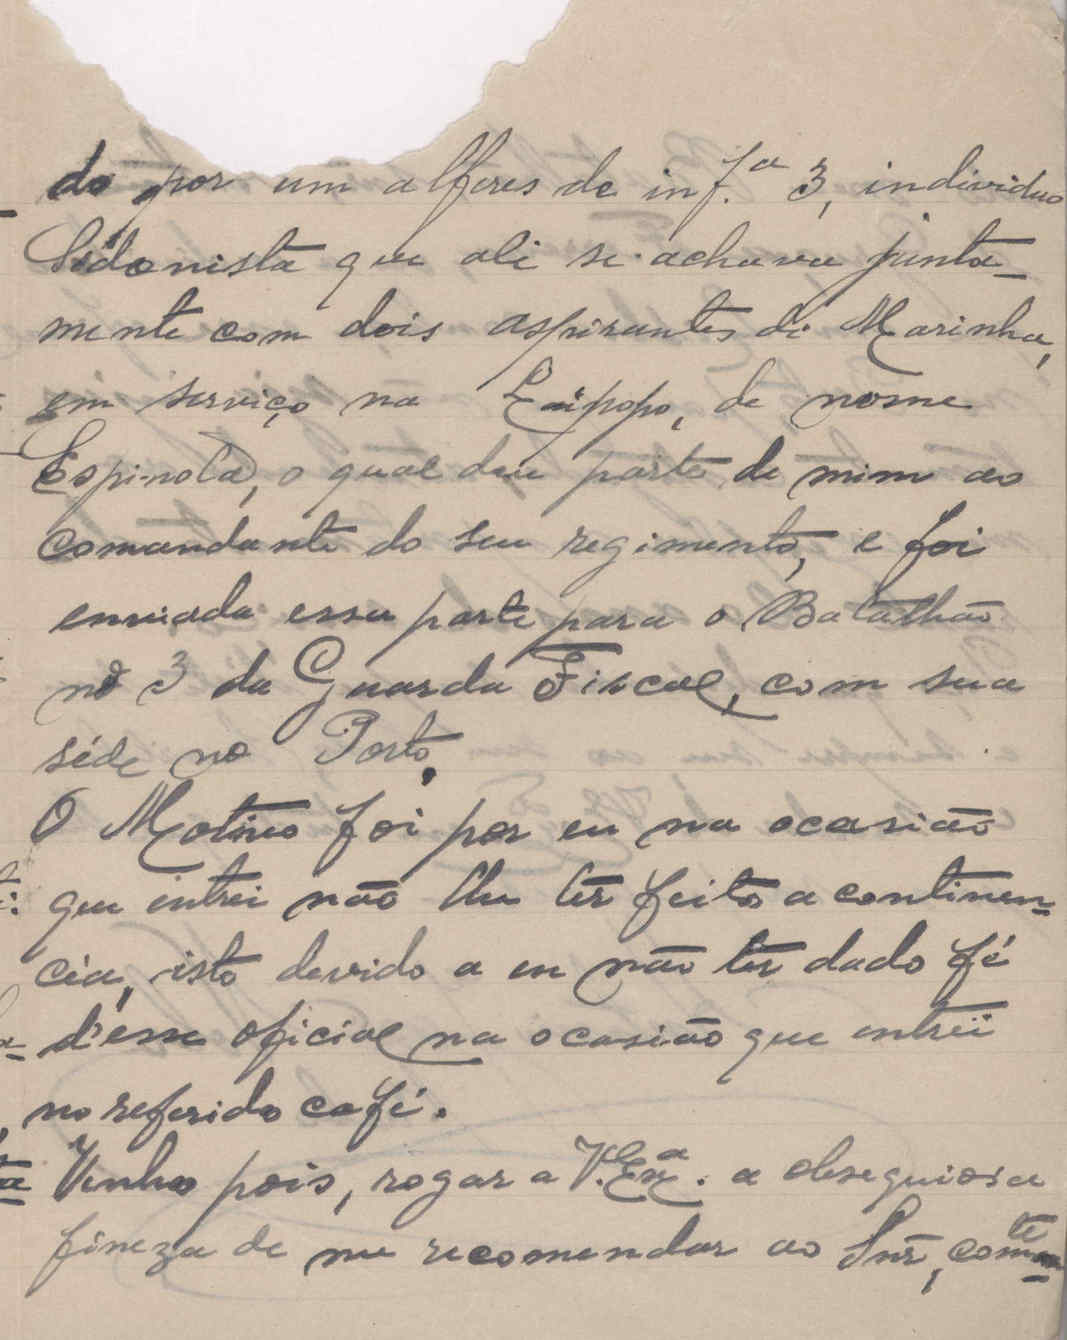 do por um alferes de inf.ª 3, individuo
Sidonista que ali se achava junta-
mente com dois aspirantes de Marinha,
em serviço na Equipopo, de nome
Espinola, o qual deu parte de mim ao
comandante do seu regimento, e foi
enviada essa parte para o Batalhão
nº 3 da Guarda Fiscal, com sua
séde no Porto.
O Motivo foi por eu na ocasião
que entrei não lhe ter feito a continen-
cia, isto devido a eu não ter dado fé
d'esse oficial na ocasião que entrei
no referido café.
Venho pois, rogar a V. Exª. a obsequiosa
fineza de me recomendar ao Snr, comte